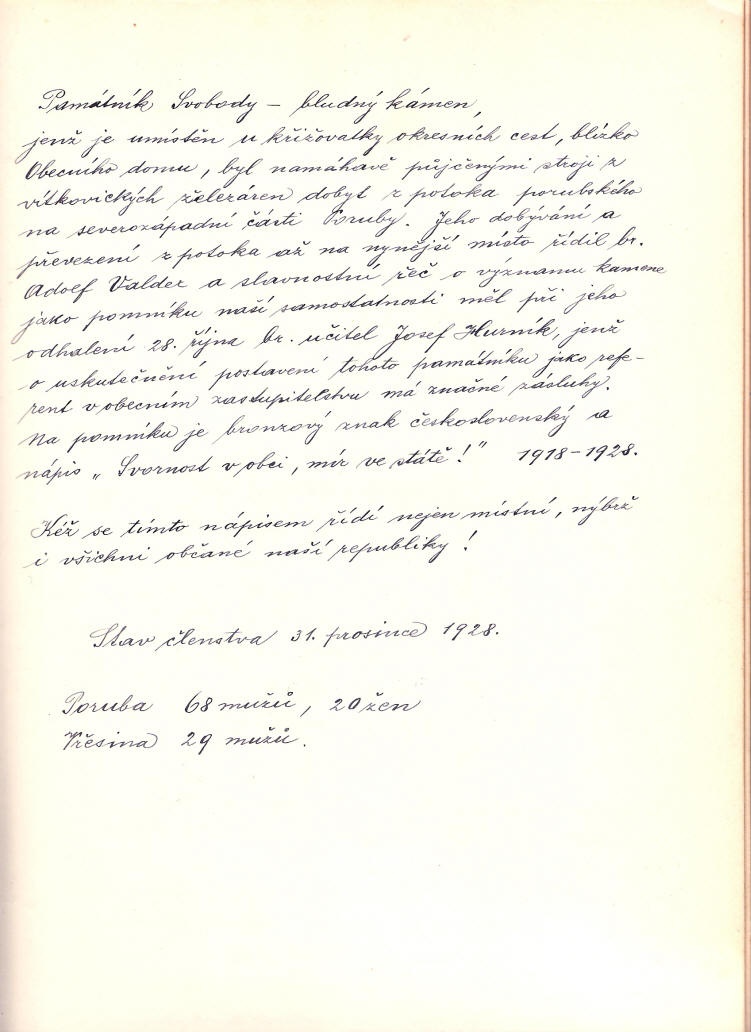 Památník Svobody – bludný kámen,
jenž je umístěn u křižovatky okresních cest, blízko
Obecního domu, byl namáhavě půjčenými stroji z
vítkovických železáren dobyt z potoka porubského
na severozápadní části Poruby. Jeho dobývání a
převezení z potoka až na nynější místo řídil br.
Adolf Valder a slavnostní řeč o významu kamene
jako pomníku naší samostatnosti měl při jeho
odhalení 28. října br. učitel Josef Hurník, jenž
o uskutečnění postavení tohoto památníku jako refe-
rent v obecním zastupitelstvu má značné zásluhy.
Na pomníku je bronzový znak československý a
nápis „Svornost v obci, mír ve státě!" 1918–1928.
Kéž se tímto nápisem řídí nejen místní, nýbrž
i všichni občané naší republiky!
Stav členstva 31. prosince 1928.
Poruba 68 mužů, 20 žen
Vřesina 29 mužů.